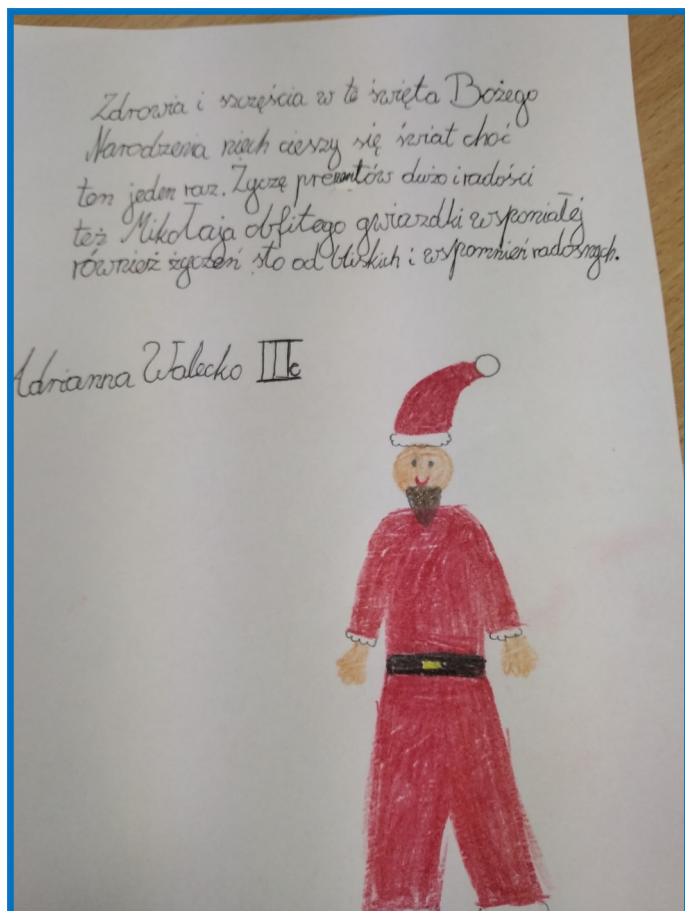 Zdrowia i szczęścia w te święta Bożego
Narodzenia niech cieszy się świat choć
ten jeden raz. Życzę prezentów dużo i radości
też Mikołaja obfitego gwiazdki wsponiałej
również życzeń sto od bliskich i wspomnień radosnych.
Adrianna Walecko III c